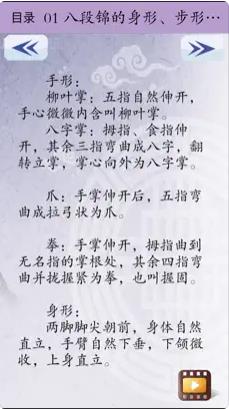 目录 01 八段锦的身形、步形…
手形：
柳叶掌：五指自然伸开，
手心微微内含叫柳叶掌。
八字掌：拇指、食指伸
开，其余三指弯曲成八字，翻
转立掌，掌心向外为八字掌。
爪：手掌伸开后，五指弯
曲成拉弓状为爪。
拳：手掌伸开，拇指曲到
无名指的掌根处，其余四指弯
曲并拢握紧为拳，也叫握固。
身形：
两脚脚尖朝前，身体自然
直立，手臂自然下垂，下颌微
收，上身直立。